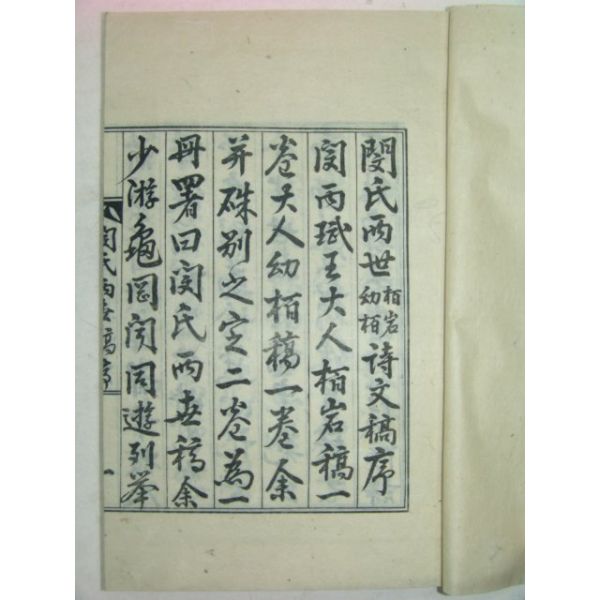 閔氏兩世栢岩幼栢詩文稿序
閔雨珷王大人栢岩稿一
卷大人幼栢稿一卷余
并硃別之定二卷為一
冊署曰閔氏兩世稿余
少游龜岡閔同遊列峯
閔氏兩世稿序
一